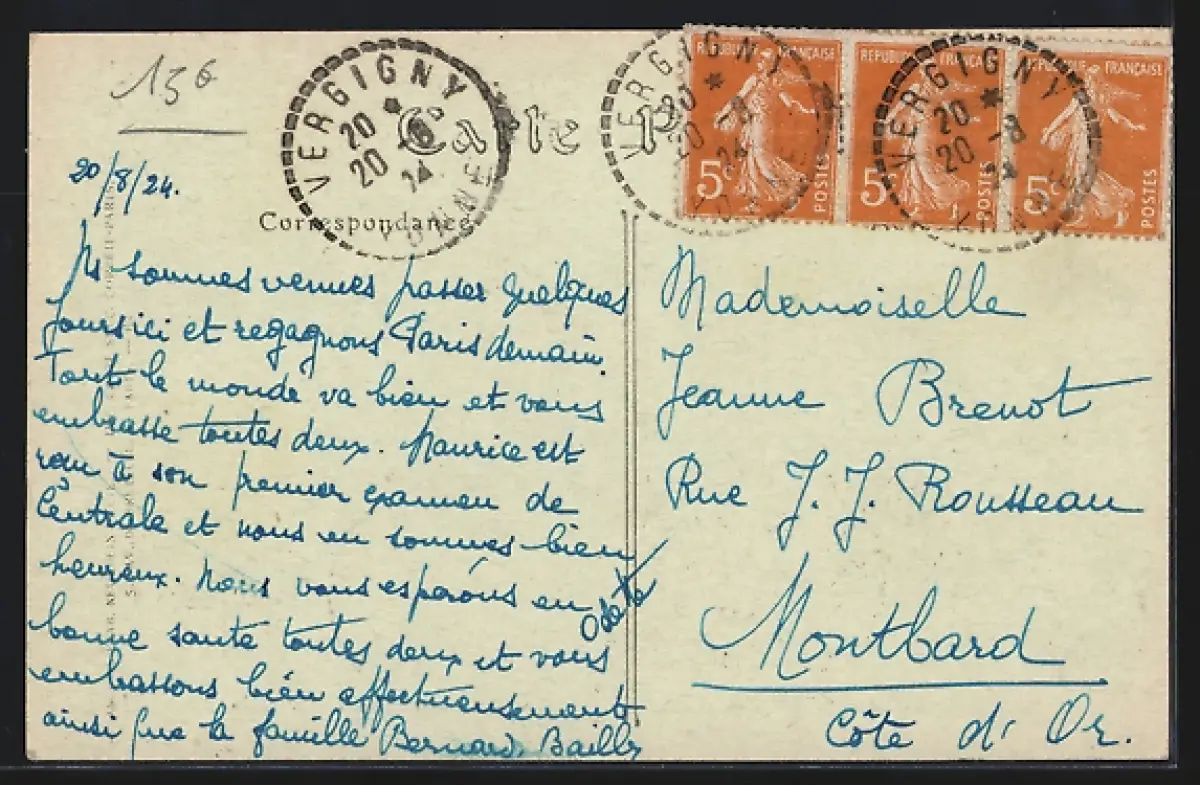 15€
VERGIGNY
20 *
20 -8
24
YONNE
Carte P
VERGIGNY
20 *
20 -8
24
YONNE
VERGIGNY
20 *
20 -8
24
YONNE
REPUBLIQUE FRANÇAISE
5c
POSTES
REPUBLIQUE FRANÇAISE
5c
POSTES
REPUBLIQUE FRANÇAISE
5c
POSTES
20/8/24.
Correspondance
Ns sommes venues passer quelques
jours ici et regagnons Paris demain.
Tout le monde va bien et vous
embrasse toutes deux. Maurice est
reçu à son premier examen de
Centrale et nous en sommes bien
heureux. Nous vous espérons en
bonne santé toutes deux et vous
embrassons bien affectueusement
ainsi que la famille Bernard, Bailly
Odette
Mademoiselle
Jeanne Brenot
Rue J. J. Rousseau
Montbard
Côte d'Or.